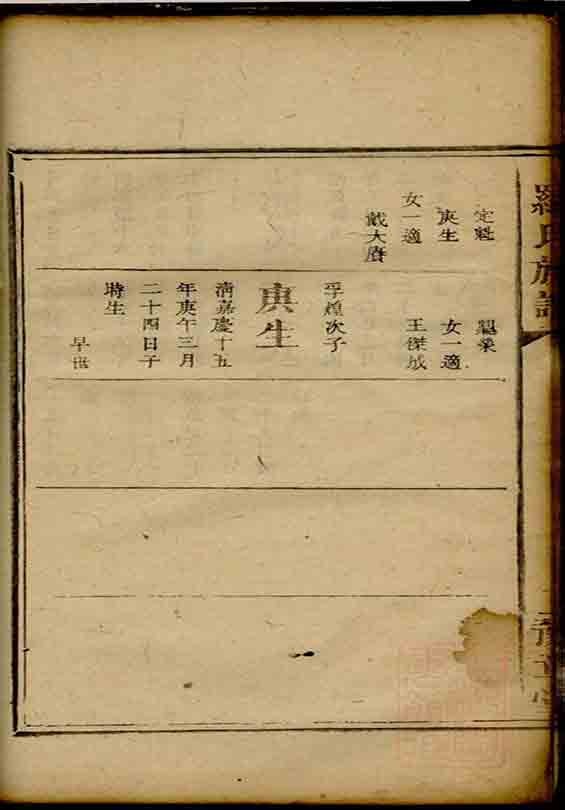 羅氏族譜
定魁
庚生
女一適
戴大賡
繼榮
女一適
王傑成
孚煌次子
庚生
清嘉慶十五
年庚午三月
二十四日子
時生
早世
豫章堂